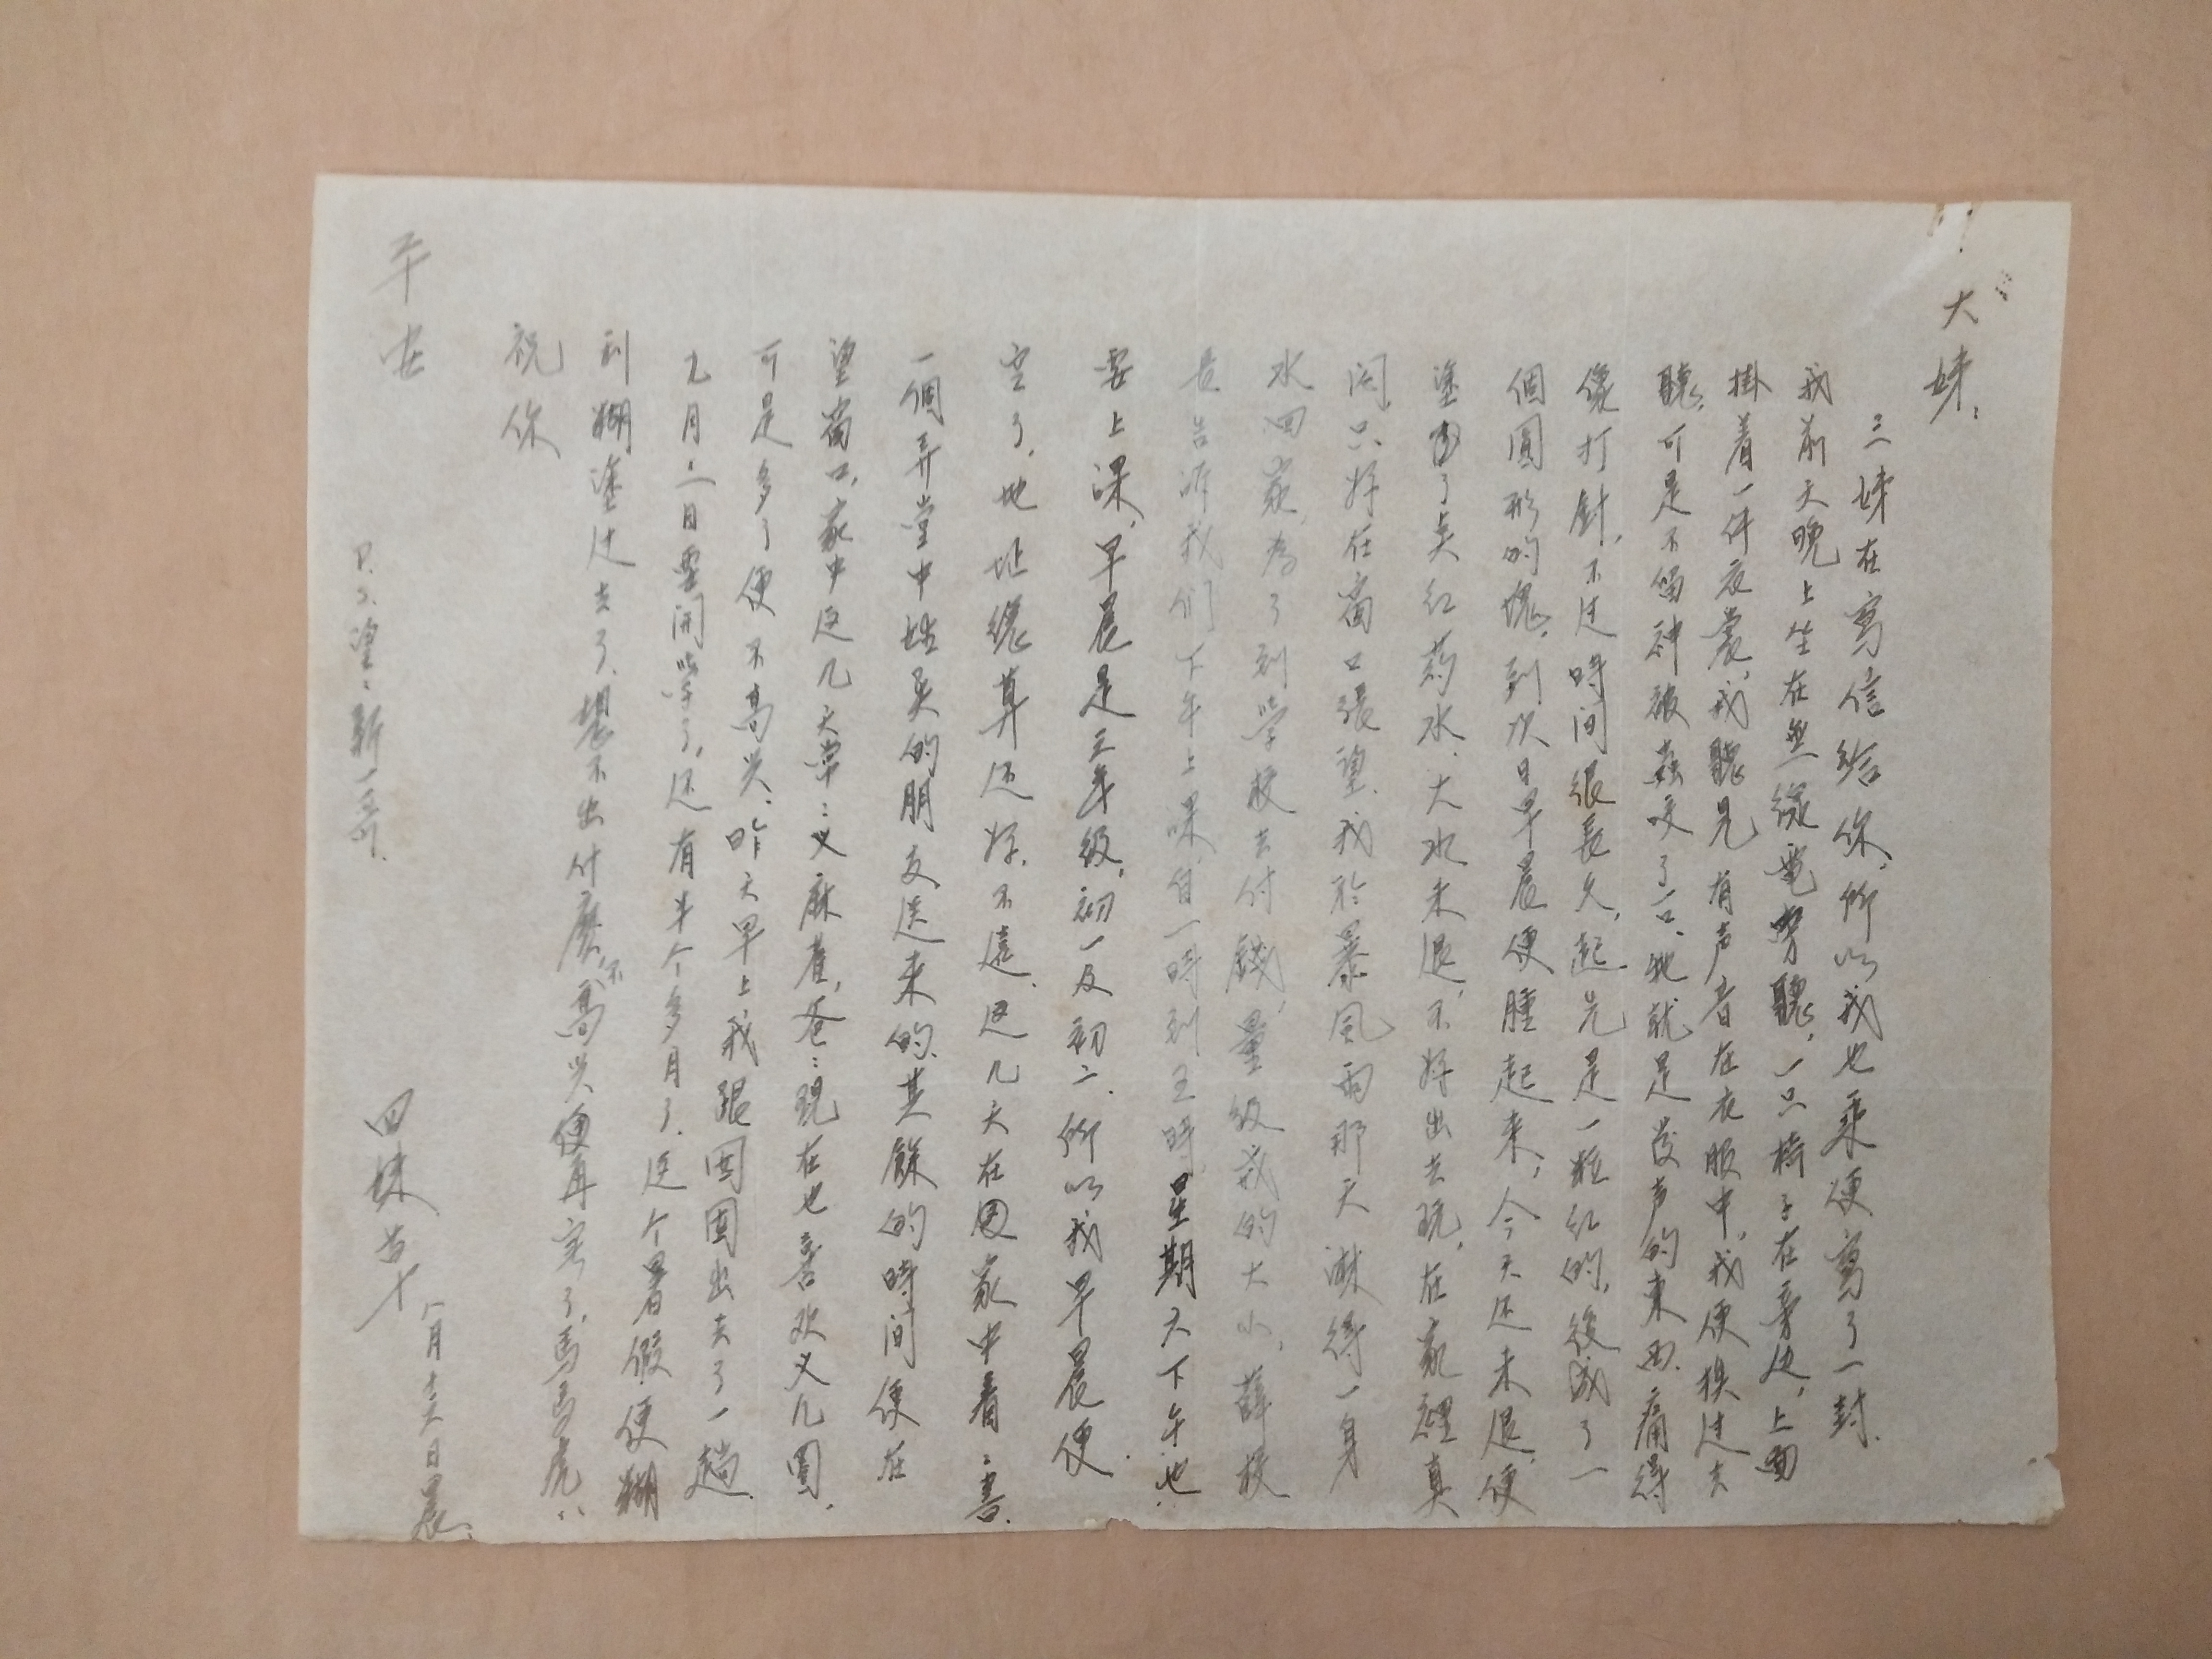 大妹：
三妹在寫信給你，所以我也來便寫了一封．
我前天晚上坐在無線電旁聽，一只椅子在旁边，上面
掛着一件衣裳，我聽見有声音在衣服中，我便換过去
聽，可是不留神被蟲咬了一口，牠就是發声的東西．痛得
像打針，不过時间很長久，起先是一粒红的，後成了一
個圓形的塊，到次日早晨便腫起来，今天还未退，便
塗了点红药水．大水未退，不好出去玩，在家裡真
闷，只好在窗口張望．我於暴風雨那天淋得一身
水回家，為了到学校去付錢，量级我的大小，薛校
長告訴我们下年上課，自一時到五時，星期六下午也
要上课，早晨是三年级，初一及初二．所以我早晨便
空了，地址總算还好，不遠．这几天在因家中看：書．
一個弄堂中姓吳的朋友送来的．其餘的時間便在
望窗口，家中这几天常：叉麻雀，爸：現在也喜欢叉几圈．
可是多了便不高兴．昨天早上我跟囡囡出去了一趟．
九月二日要開学了，还有半个多月了．这个暑假便糊
利糊塗过去了．想不出什麼，不高兴便再寫了，馬馬虎：
祝你
平安
四妹苗十
八月十六日晨．
P.S.望：新一哥．